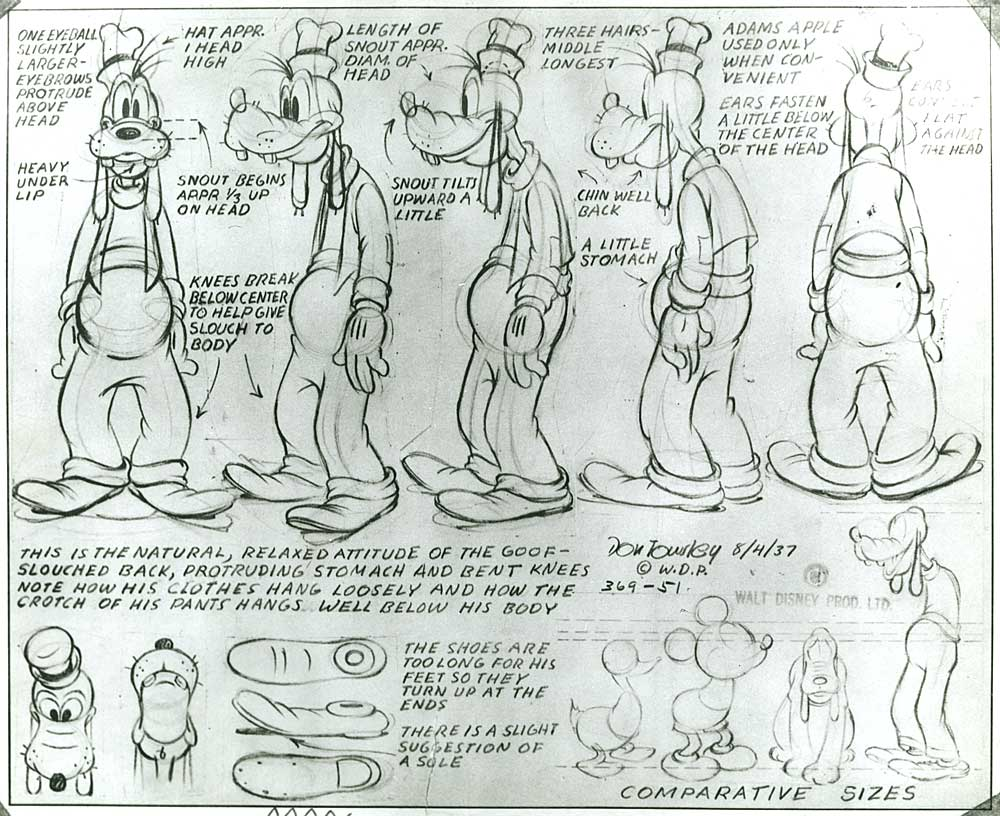 ONE EYEBALL
SLIGHTLY
LARGER-
EYEBROWS
PROTRUDE
ABOVE
HEAD
HAT APPR.
1 HEAD
HIGH
LENGTH OF
SNOUT APPR.
DIAM. OF
HEAD
THREE HAIRS-
MIDDLE
LONGEST
ADAMS APPLE
USED ONLY
WHEN CON-
VENIENT
EARS FASTEN
A LITTLE BELOW
THE CENTER
OF THE HEAD
EARS
FLAT
AGAINST
THE HEAD
HEAVY
UNDER
LIP
SNOUT BEGINS
APPR 1/3 UP
ON HEAD
SNOUT TILTS
UPWARD A
LITTLE
CHIN WELL
BACK
A LITTLE
STOMACH
KNEES BREAK
BELOW CENTER
TO HELP GIVE
SLOUCH TO
BODY
THIS IS THE NATURAL, RELAXED ATTITUDE OF THE GOOF-
SLOUCHED BACK, PROTRUDING STOMACH AND BENT KNEES
NOTE HOW HIS CLOTHES HANG LOOSELY AND HOW THE
CROTCH OF HIS PANTS HANGS WELL BELOW HIS BODY
Don Towsley 8/4/37
© W.D.P.
369-51.
WALT DISNEY PROD. LTD.
THE SHOES ARE
TOO LONG FOR HIS
FEET SO THEY
TURN UP AT THE
ENDS
THERE IS A SLIGHT
SUGGESTION OF
A SOLE
COMPARATIVE SIZES